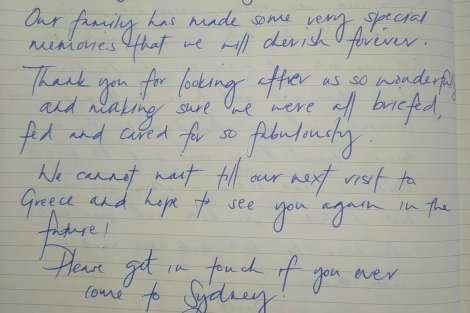 Our family has made some very special
memories that we will cherish forever.
Thank you for looking after us so wonderfully
and making sure we were all briefed,
fed and cared for so fabulously.
We cannot wait till our next visit to
Greece and hope to see you again in the
future!
Please get in touch if you ever
come to Sydney.